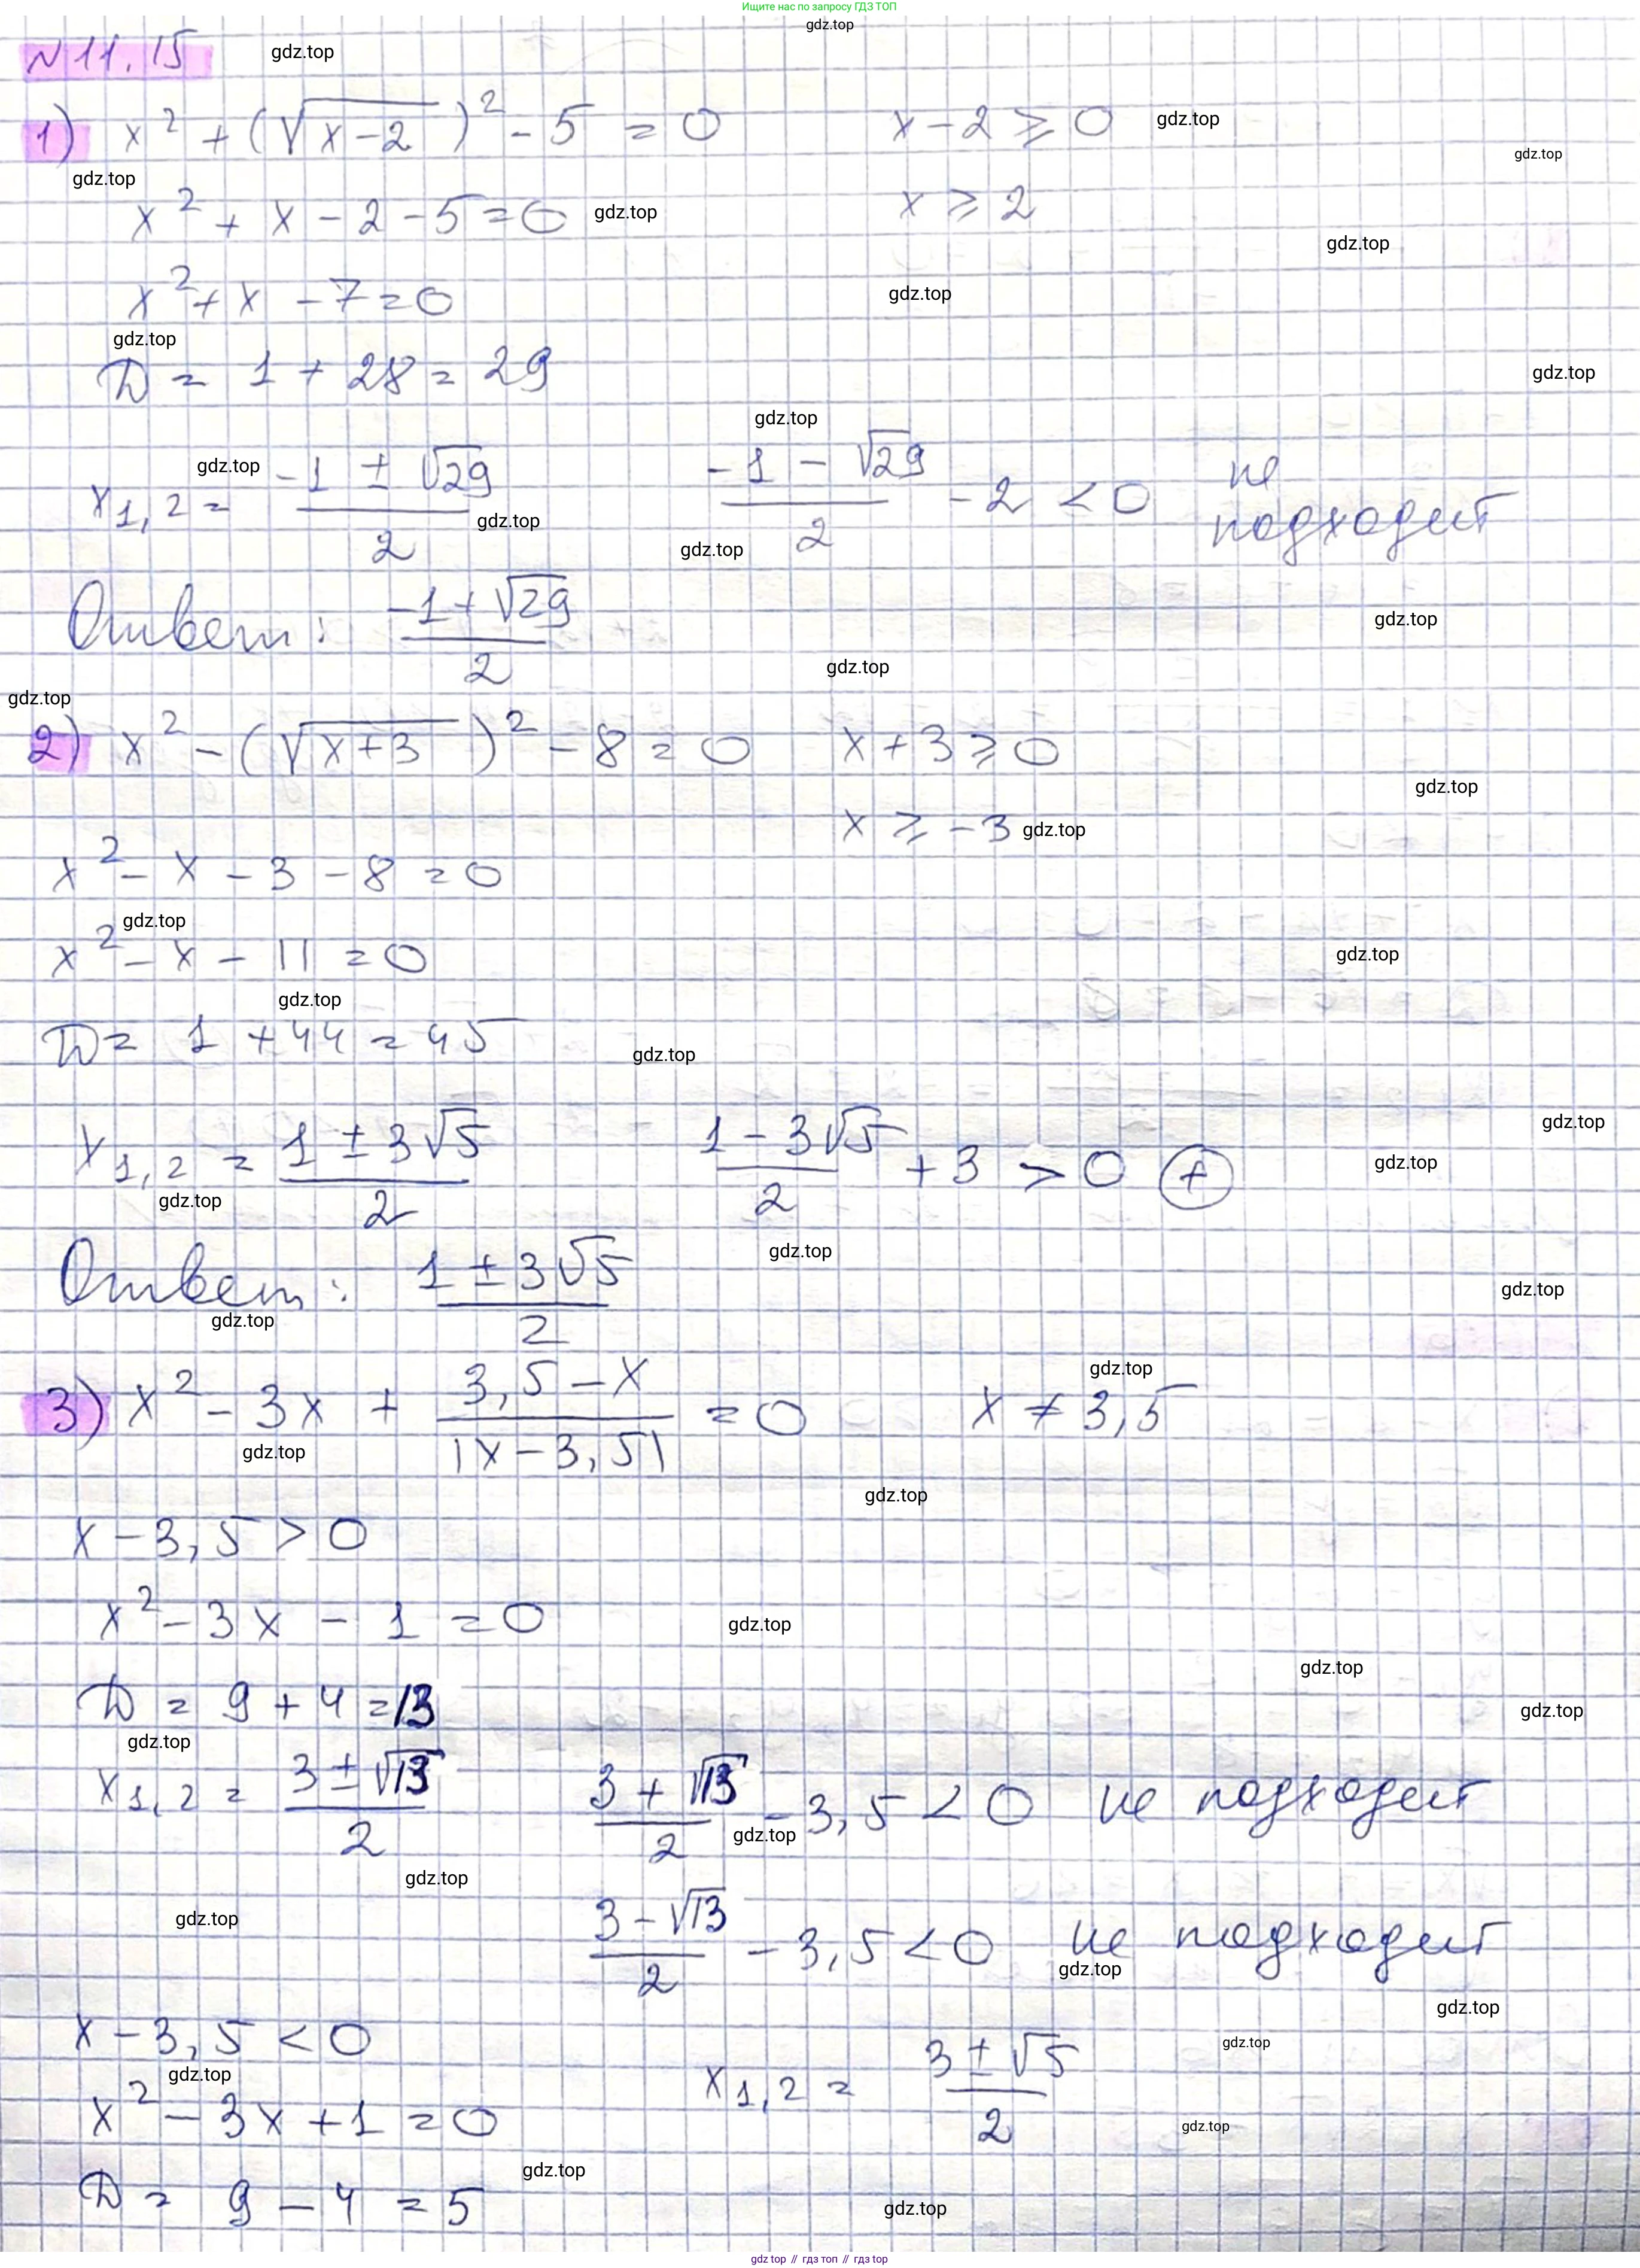 Ищите нас по запросу ГДЗ ТОП
gdz.top
№ 11.15
gdz.top
1) x² + (√(x-2))² - 5 = 0    x - 2 ⩾ 0
gdz.top
gdz.top
gdz.top
x² + x - 2 - 5 = 0    x ⩾ 2
gdz.top
gdz.top
x² + x - 7 = 0
gdz.top
gdz.top
D = 1 + 28 = 29
gdz.top
gdz.top
x1,2 = (-1 ± √29)/2    (-1 - √29)/2 - 2 < 0    не подходит
gdz.top
gdz.top
gdz.top
Ответ: (-1 + √29)/2
gdz.top
gdz.top
gdz.top
2) x² - (√(x+3))² - 8 = 0    x + 3 ⩾ 0
gdz.top
x ⩾ -3
gdz.top
x² - x - 3 - 8 = 0
gdz.top
x² - x - 11 = 0
gdz.top
gdz.top
D = 1 + 44 = 45
gdz.top
gdz.top
x1,2 = (1 ± 3√5)/2    (1 - 3√5)/2 + 3 > 0 ⊕
gdz.top
gdz.top
gdz.top
Ответ: (1 ± 3√5)/2
gdz.top
gdz.top
gdz.top
3) x² - 3x + (3,5 - x)/|x - 3,5| = 0    x ≠ 3,5
gdz.top
gdz.top
x - 3,5 > 0
x² - 3x - 1 = 0
gdz.top
gdz.top
D = 9 + 4 = 13
gdz.top
gdz.top
x1,2 = (3 ± √13)/2    (3 + √13)/2 - 3,5 < 0    не подходит
gdz.top
gdz.top
gdz.top
(3 - √13)/2 - 3,5 < 0    не подходит
gdz.top
gdz.top
x - 3,5 < 0    x1,2 = (3 ± √5)/2
gdz.top
gdz.top
x² - 3x + 1 = 0
gdz.top
gdz.top
D = 9 - 4 = 5
gdz.top
gdz.top // гдз топ // гдз top